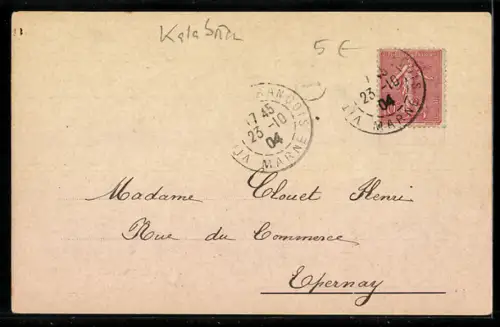 5 €
FRANÇOIS
17 45
23 -10
04
MARNE
23 -10
04
MARNE
Madame Clouet Henri
Rue du Commerce
Epernay